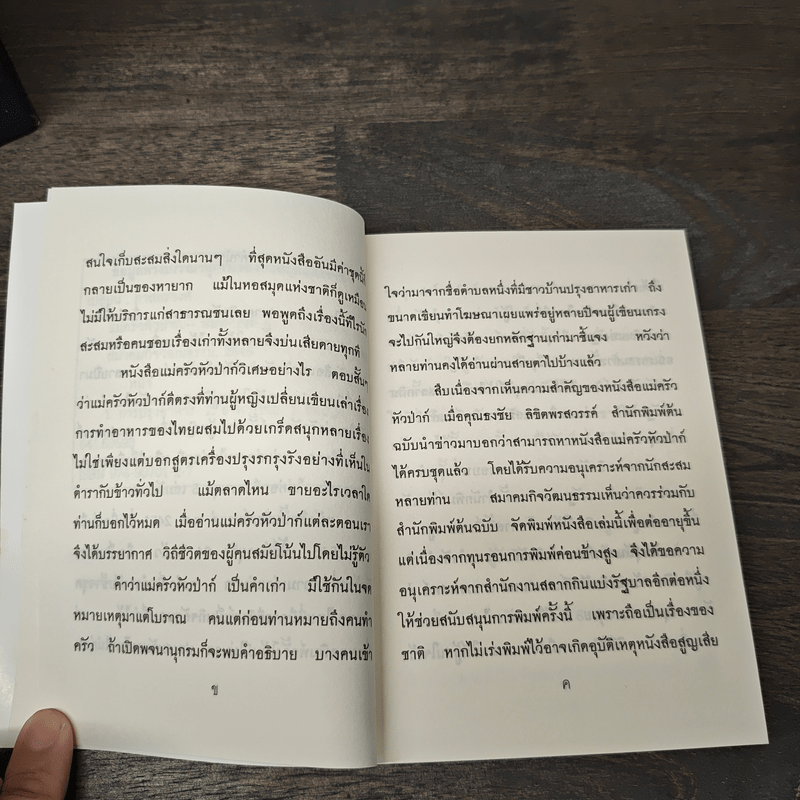 สนใจเก็บสะสมสิ่งใดนานๆ ที่สุดหนังสืออันมีค่าชุดนี้
กลายเป็นของหายาก แม้ในหอสมุดแห่งชาติก็ดูเหมือน
ไม่มีให้บริการแก่สาธารณชนเลย พอพูดถึงเรื่องนี้ทีไรนัก
สะสมหรือคนชอบเรื่องเก่าทั้งหลายจึงบ่นเสียดายทุกที
หนังสือแม่ครัวหัวป่าก์วิเศษอย่างไร ตอบสั้นๆ
ว่าแม่ครัวหัวป่าก์ดีตรงที่ท่านผู้หญิงเปลี่ยนเขียนเล่าเรื่อง
การทำอาหารของไทยผสมไปด้วยเกร็ดสนุกหลายเรื่อง
ไม่ใช่เพียงแต่บอกสูตรเครื่องปรุงรกรุงรังอย่างที่เห็นใน
ตำรากับข้าวทั่วไป แม้ตลาดไหน ขายอะไรเวลาใด
ท่านก็บอกไว้หมด เมื่ออ่านแม่ครัวหัวป่าก์แต่ละตอนเรา
จึงได้บรรยากาศ วิถีชีวิตของผู้คนสมัยโน้นไปโดยไม่รู้ตัว
คำว่าแม่ครัวหัวป่าก์ เป็นคำเก่า มีใช้กันในจด
หมายเหตุมาแต่โบราณ คนแต่ก่อนท่านหมายถึงคนทำ
ครัว ถ้าเปิดพจนานุกรมก็จะพบคำอธิบาย บางคนเข้า
ข
ใจว่ามาจากชื่อตำบลหนึ่งที่มีชาวบ้านปรุงอาหารเก่า ถึง
ขนาดเขียนทำโฆษณาเผยแพร่อยู่หลายปีจนผู้เขียนเกรง
จะไปกันใหญ่จึงต้องยกหลักฐานเก่ามาชี้แจง หวังว่า
หลายท่านคงได้อ่านผ่านสายตาไปบ้างแล้ว
สืบเนื่องจากเห็นความสำคัญของหนังสือแม่ครัว
หัวป่าก์ เมื่อคุณธงชัย ลิขิตพรสวรรค์ สำนักพิมพ์ต้น
ฉบับนำข่าวมาบอกว่าสามารถหาหนังสือแม่ครัวหัวป่าก์
ได้ครบชุดแล้ว โดยได้รับความอนุเคราะห์จากนักสะสม
หลายท่าน สมาคมกิจวัฒนธรรมเห็นว่าควรร่วมกับ
สำนักพิมพ์ต้นฉบับ จัดพิมพ์หนังสือเล่มนี้เพื่อต่ออายุขึ้น
แต่เนื่องจากทุนรอนการพิมพ์ค่อนข้างสูง จึงได้ขอความ
อนุเคราะห์จากสำนักงานสลากกินแบ่งรัฐบาลอีกต่อหนึ่ง
ให้ช่วยสนับสนุนการพิมพ์ครั้งนี้ เพราะถือเป็นเรื่องของ
ชาติ หากไม่เร่งพิมพ์ไว้อาจเกิดอุบัติเหตุหนังสือสูญเสีย
ค